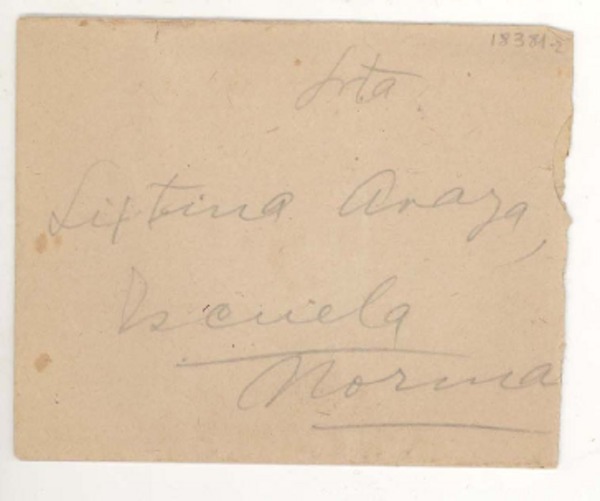 18381-2
Srta
Sixtina Araya,
Escuela
Norma